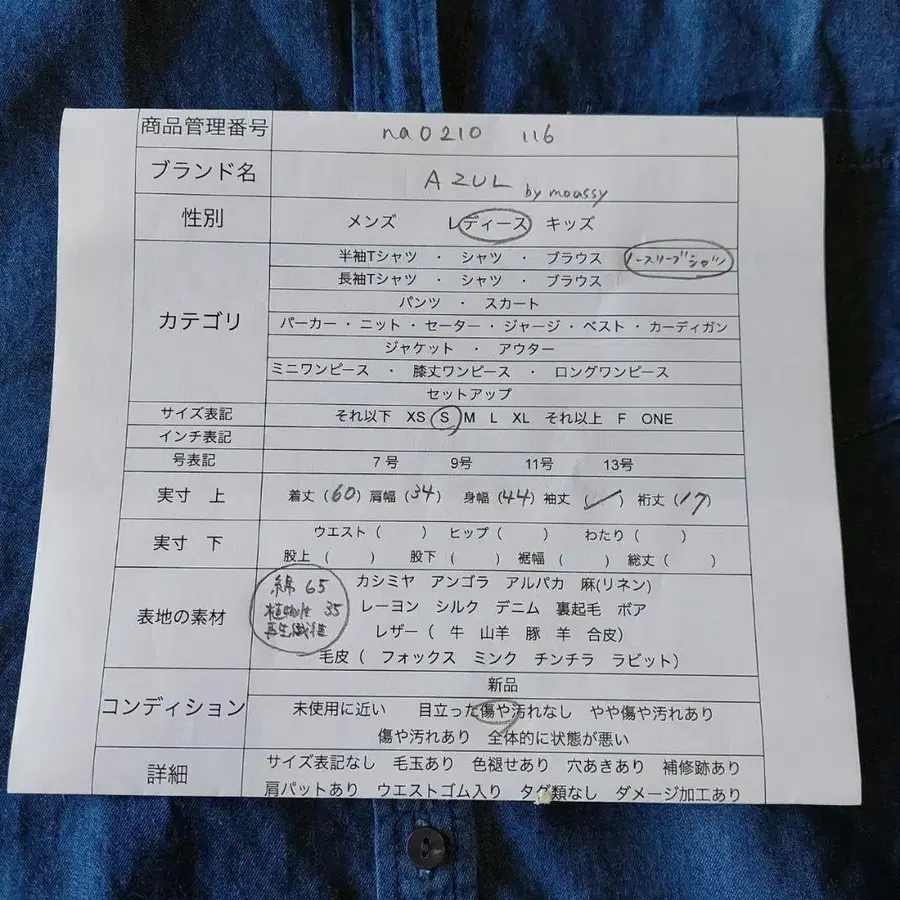 商品管理番号 na0210 116
ブランド名 AZUL by moussy
性別 メンズ レディース キッズ
カテゴリ
半袖Tシャツ ・ シャツ ・ ブラウス ノースリーブシャツ
長袖Tシャツ ・ シャツ ・ ブラウス
パンツ ・ スカート
パーカー・ニット・セーター・ジャージ・ベスト・カーディガン
ジャケット ・ アウター
ミニワンピース ・ 膝丈ワンピース ・ ロングワンピース
セットアップ
サイズ表記 それ以下 XS S M L XL それ以上 F ONE
インチ表記
号表記 7号 9号 11号 13号
実寸 上 着丈(60) 肩幅(34) 身幅(44) 袖丈(✓) 裄丈(17)
実寸 下
ウエスト( ) ヒップ( ) わたり( )
股上( ) 股下( ) 裾幅( ) 総丈( )
表地の素材
綿 65
植物性 35
再生繊維
カシミヤ アンゴラ アルパカ 麻(リネン)
レーヨン シルク デニム 裏起毛 ボア
レザー( 牛 山羊 豚 羊 合皮)
毛皮( フォックス ミンク チンチラ ラビット)
コンディション
新品
未使用に近い 目立った傷や汚れなし やや傷や汚れあり
傷や汚れあり 全体的に状態が悪い
詳細
サイズ表記なし 毛玉あり 色褪せあり 穴あきあり 補修跡あり
肩パットあり ウエストゴム入り タグ類なし ダメージ加工あり